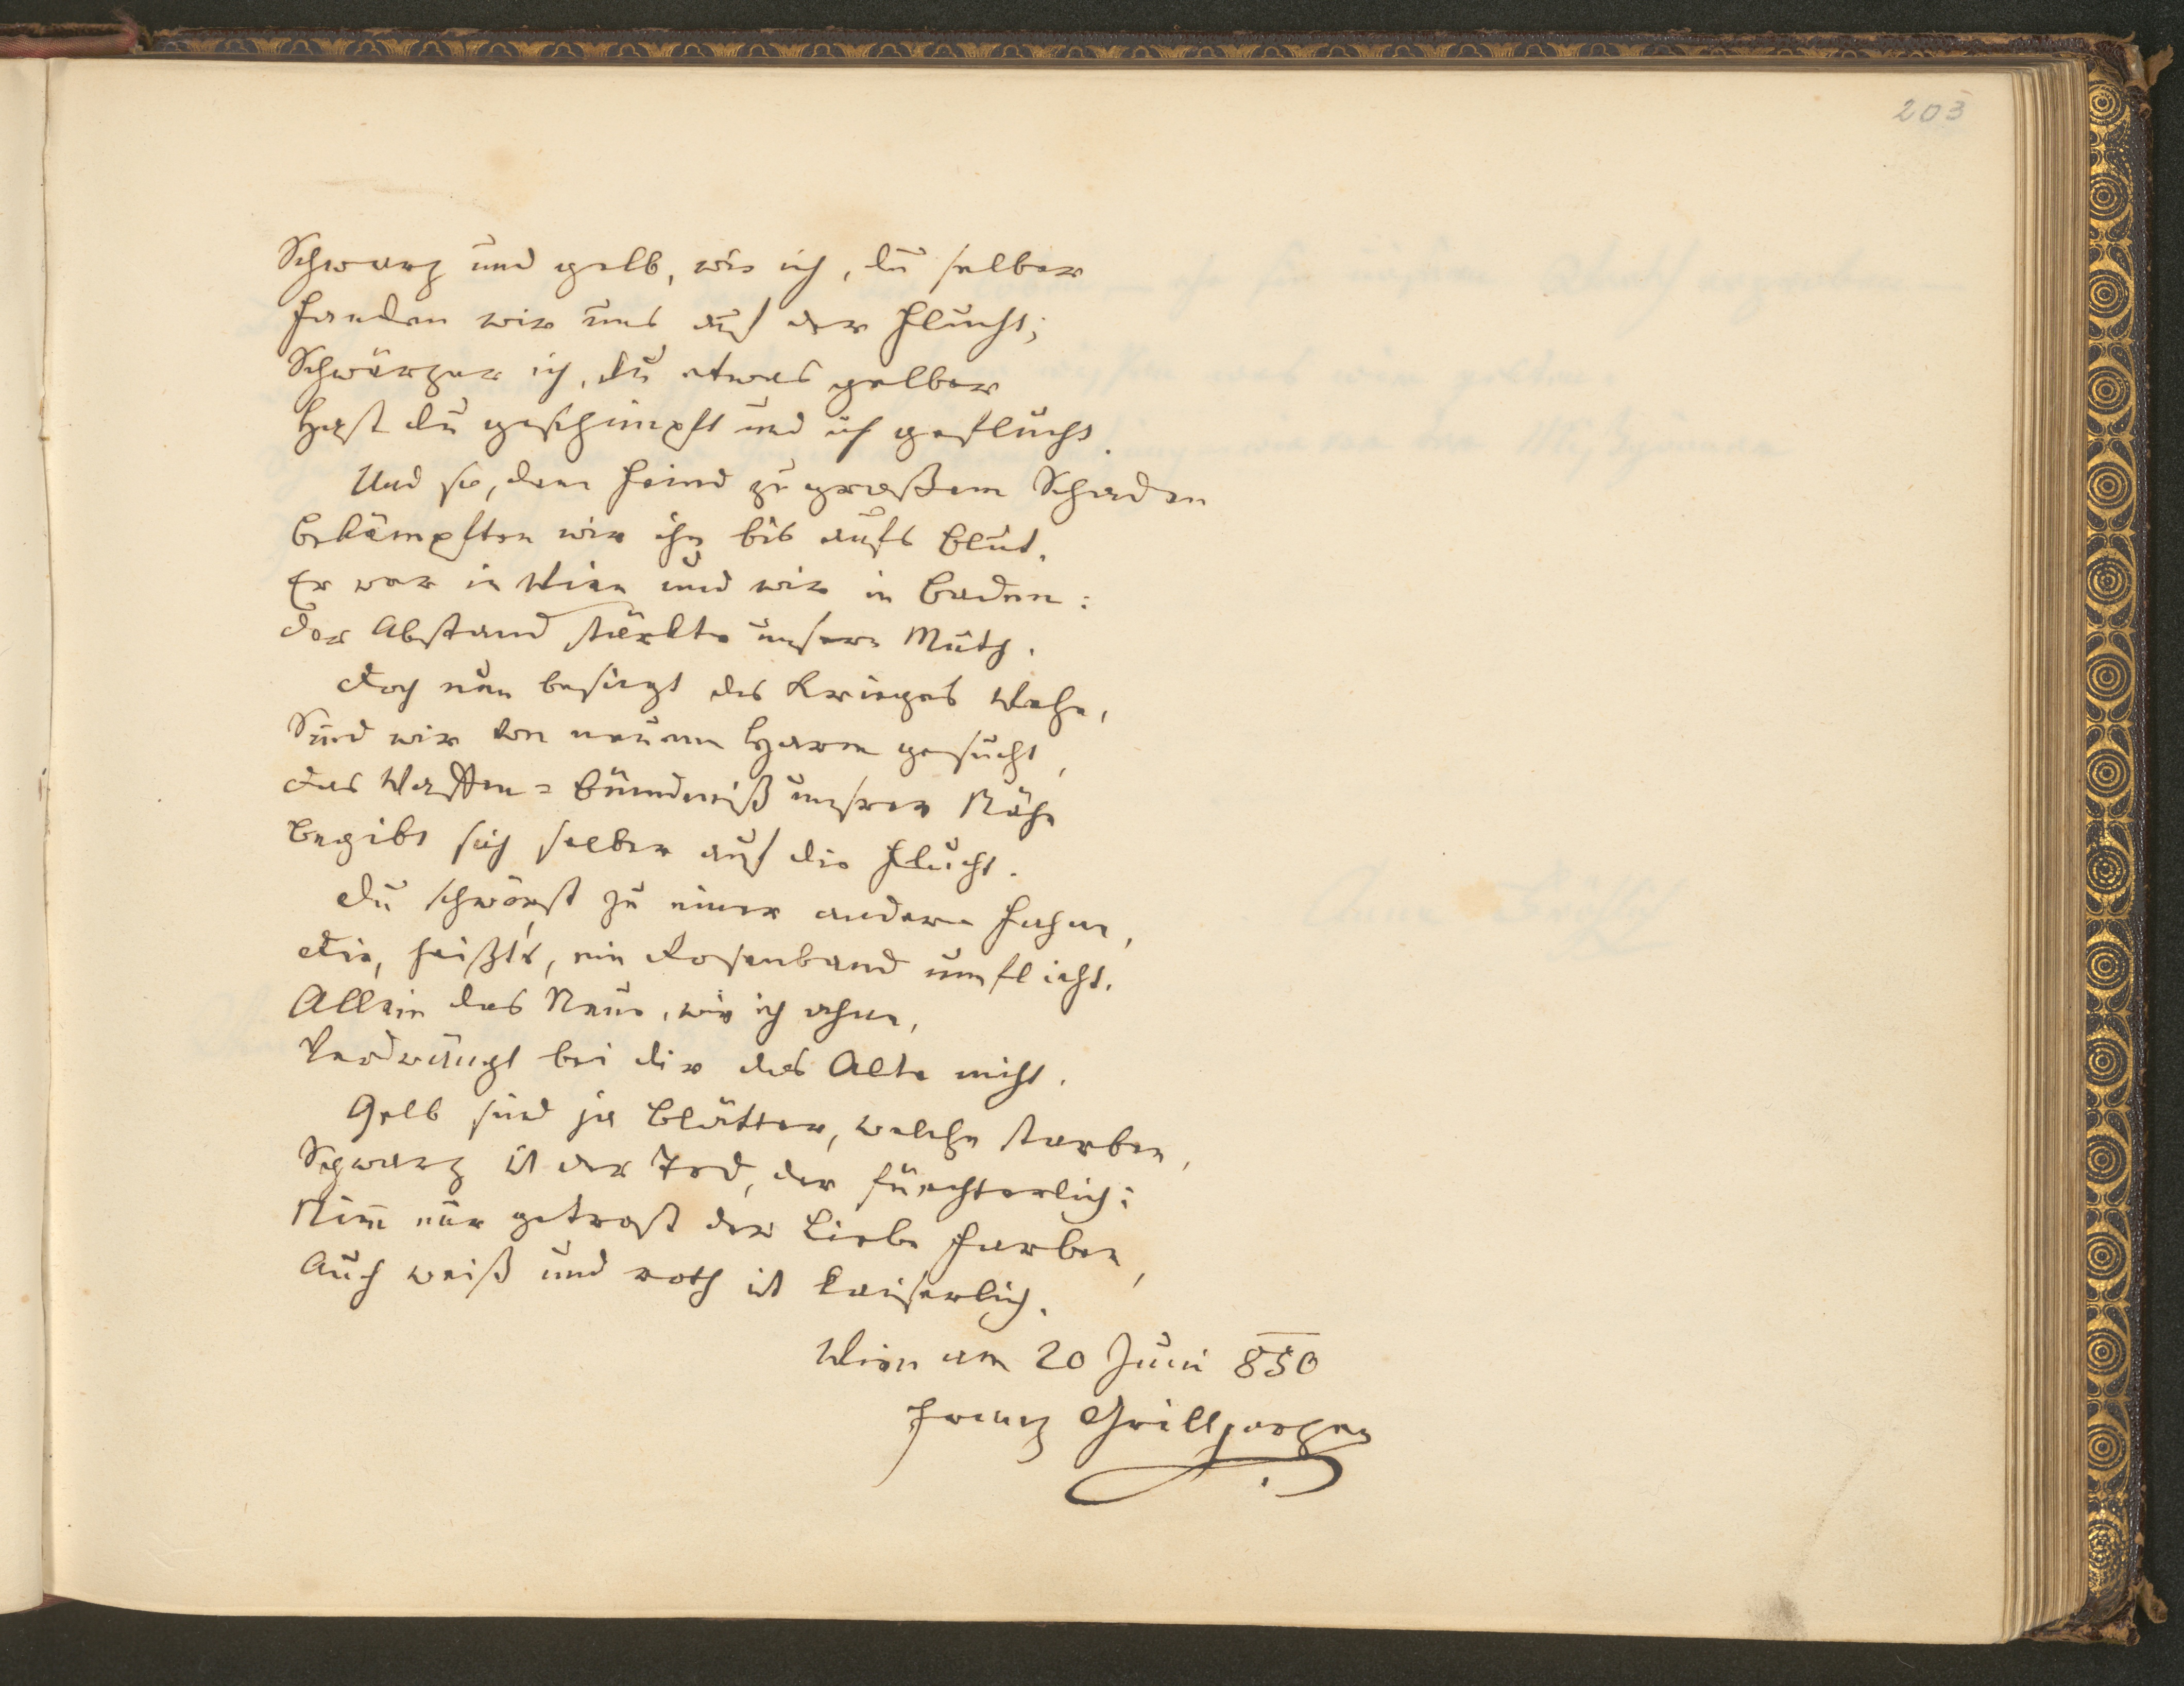 203
Schwarz und gelb, wie ich, du selber
Fanden wir uns auf der Flucht;
Schwärzer ich, du etwas gelber
Hast du geschimpft und ich geflucht.
Und so, dem Feind zu großem Schaden
Bekämpften wir ihn bis aufs Blut.
Er war in Wien und wir in Baden:
Der Abstand stärkte unsern Muth.
Doch nun besiegt des Krieges Wehe,
Sind wir von neuem Harm gesucht,
Das Waffen=Bündniß unsrer Nähe
Begibt sich selber auf die Flucht.
Du schwörst zu einer andern Fahne,
Die, heißt's, ein Rosenband umflicht.
Allein das Neue, wie ich ahne,
Verdrängt bei dir das Alte nicht.
Gelb sind ja Blätter, welche starben,
Schwarz ist der Tod, der fürchterlich;
Nim̄ nur getrost der Liebe Farben,
Auch weiß und roth ist kaiserlich.
Wien am 20 Juni 850
Franz Grillparzer